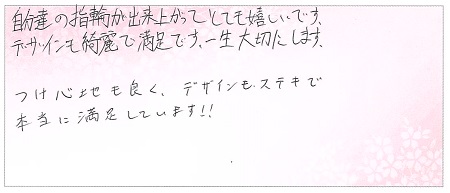 自分達の指輪が出来上がってとても嬉しいです。
デザインも綺麗で満足です。一生大切にします。
つけ心地も良く、デザインもステキで
本当に満足しています!!